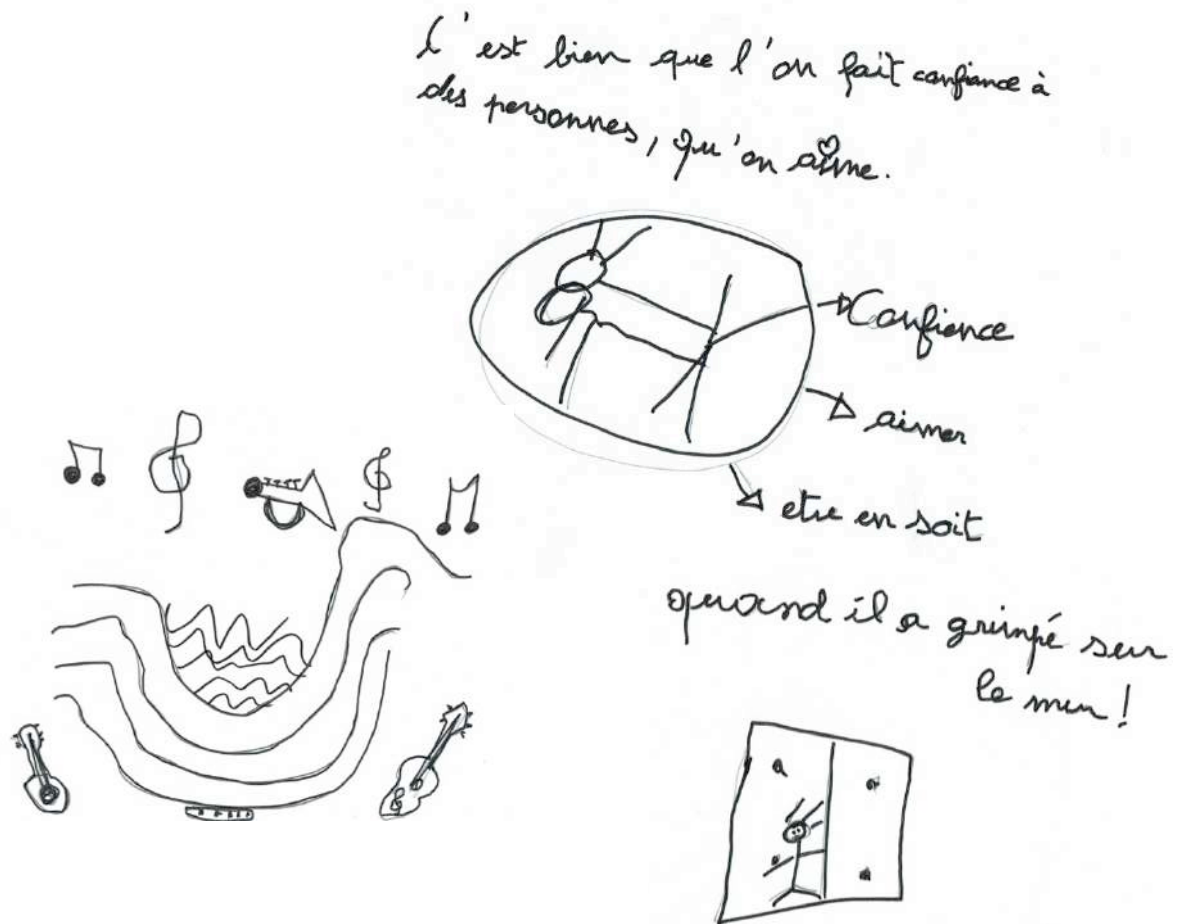 C'est bien que l'on fait confiance à
des personnes, qu'on aime.
Confience
aimer
etre en soit
quand il a grimpé sur
le mur !